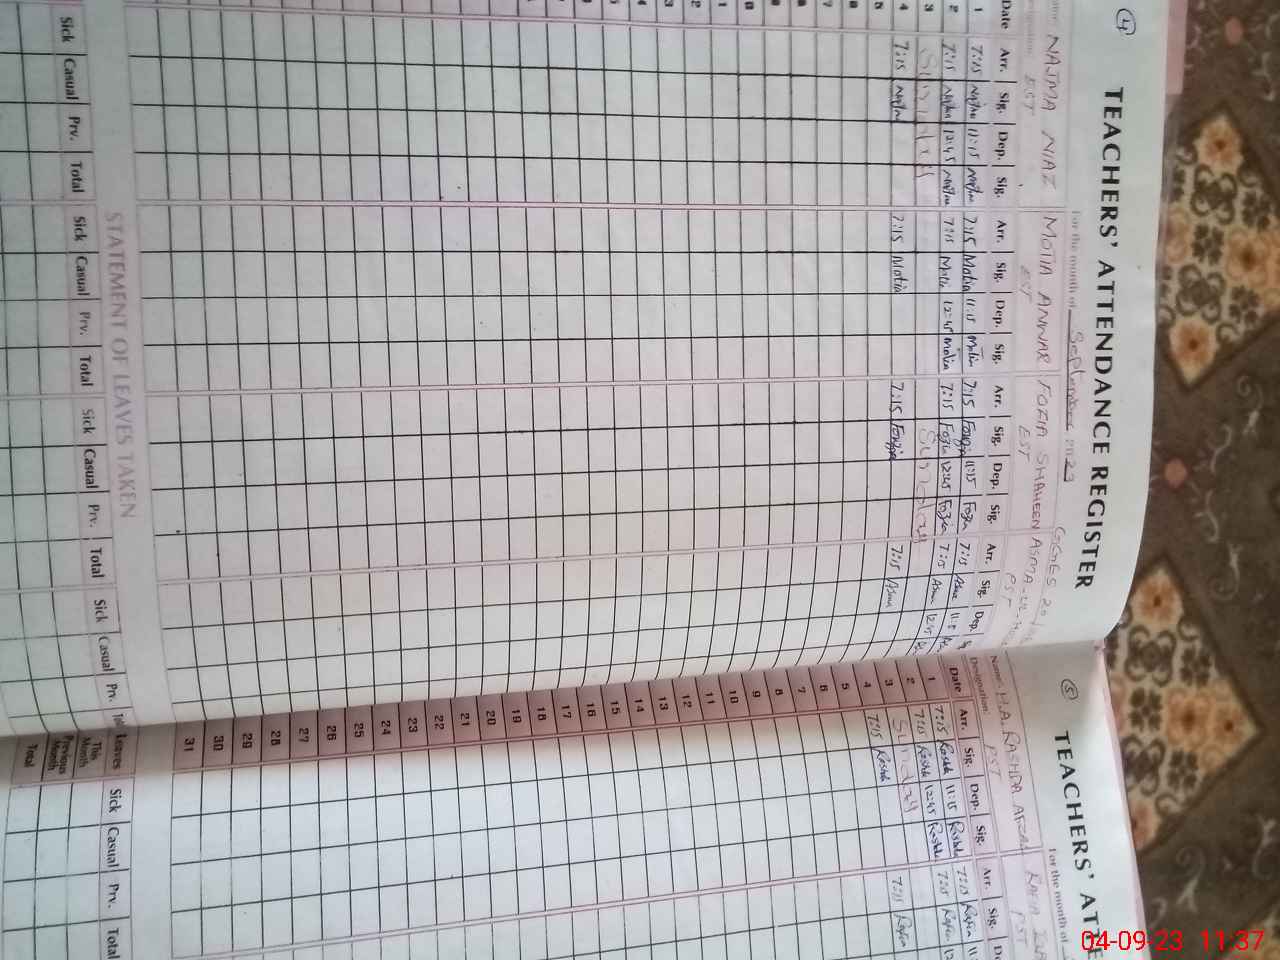 4
TEACHERS' ATTENDANCE REGISTER
For the month of September 2023
NAJMA NIAZ MOTIA ANWAR FOZIA SHAHEEN ASMA
EST EST EST PST
Date Arr. Sig. Dep. Sig. Arr. Sig. Dep. Sig. Arr. Sig. Dep. Sig. Arr. Sig. Dep.
1 7:15 Najma 11:15 Najma 7:15 Motia 11:15 Motia 7:15 Fozia 11:15 Fozia 7:15 Asma
2 7:15 Najma 12:45 Najma 7:15 Motia 12:45 Motia 7:15 Fozia 12:45 Fozia 7:15 Asma 12:45
3 Sunday Sunday
4 7:15 Najma 7:15 Motia 7:15 Fouzia 7:15 Asma
5
STATEMENT OF LEAVES TAKEN
Sick Casual Prv. Total Sick Casual Prv. Total Sick Casual Prv. Total Sick Casual Prv.
5
TEACHERS' ATTE
For the month of
Name: RASHDA
Designation: PST PST
Date Arr. Sig. Dep. Sig. Arr. Sig.
1 7:15 Rashda 11:15 Rashda 7:15 Rafia
2 7:15 Rashda 12:45 Rashda 7:15 Rafia
3 Sunday
4 7:15 Rashda 7:15 Rafia
5
6
7
8
9
10
11
12
13
14
15
16
17
18
19
20
21
22
23
24
25
26
27
28
29
30
31
Leaves Sick Casual Prv. Total
This Month
Previous Month
Total
04-09-23 11:37